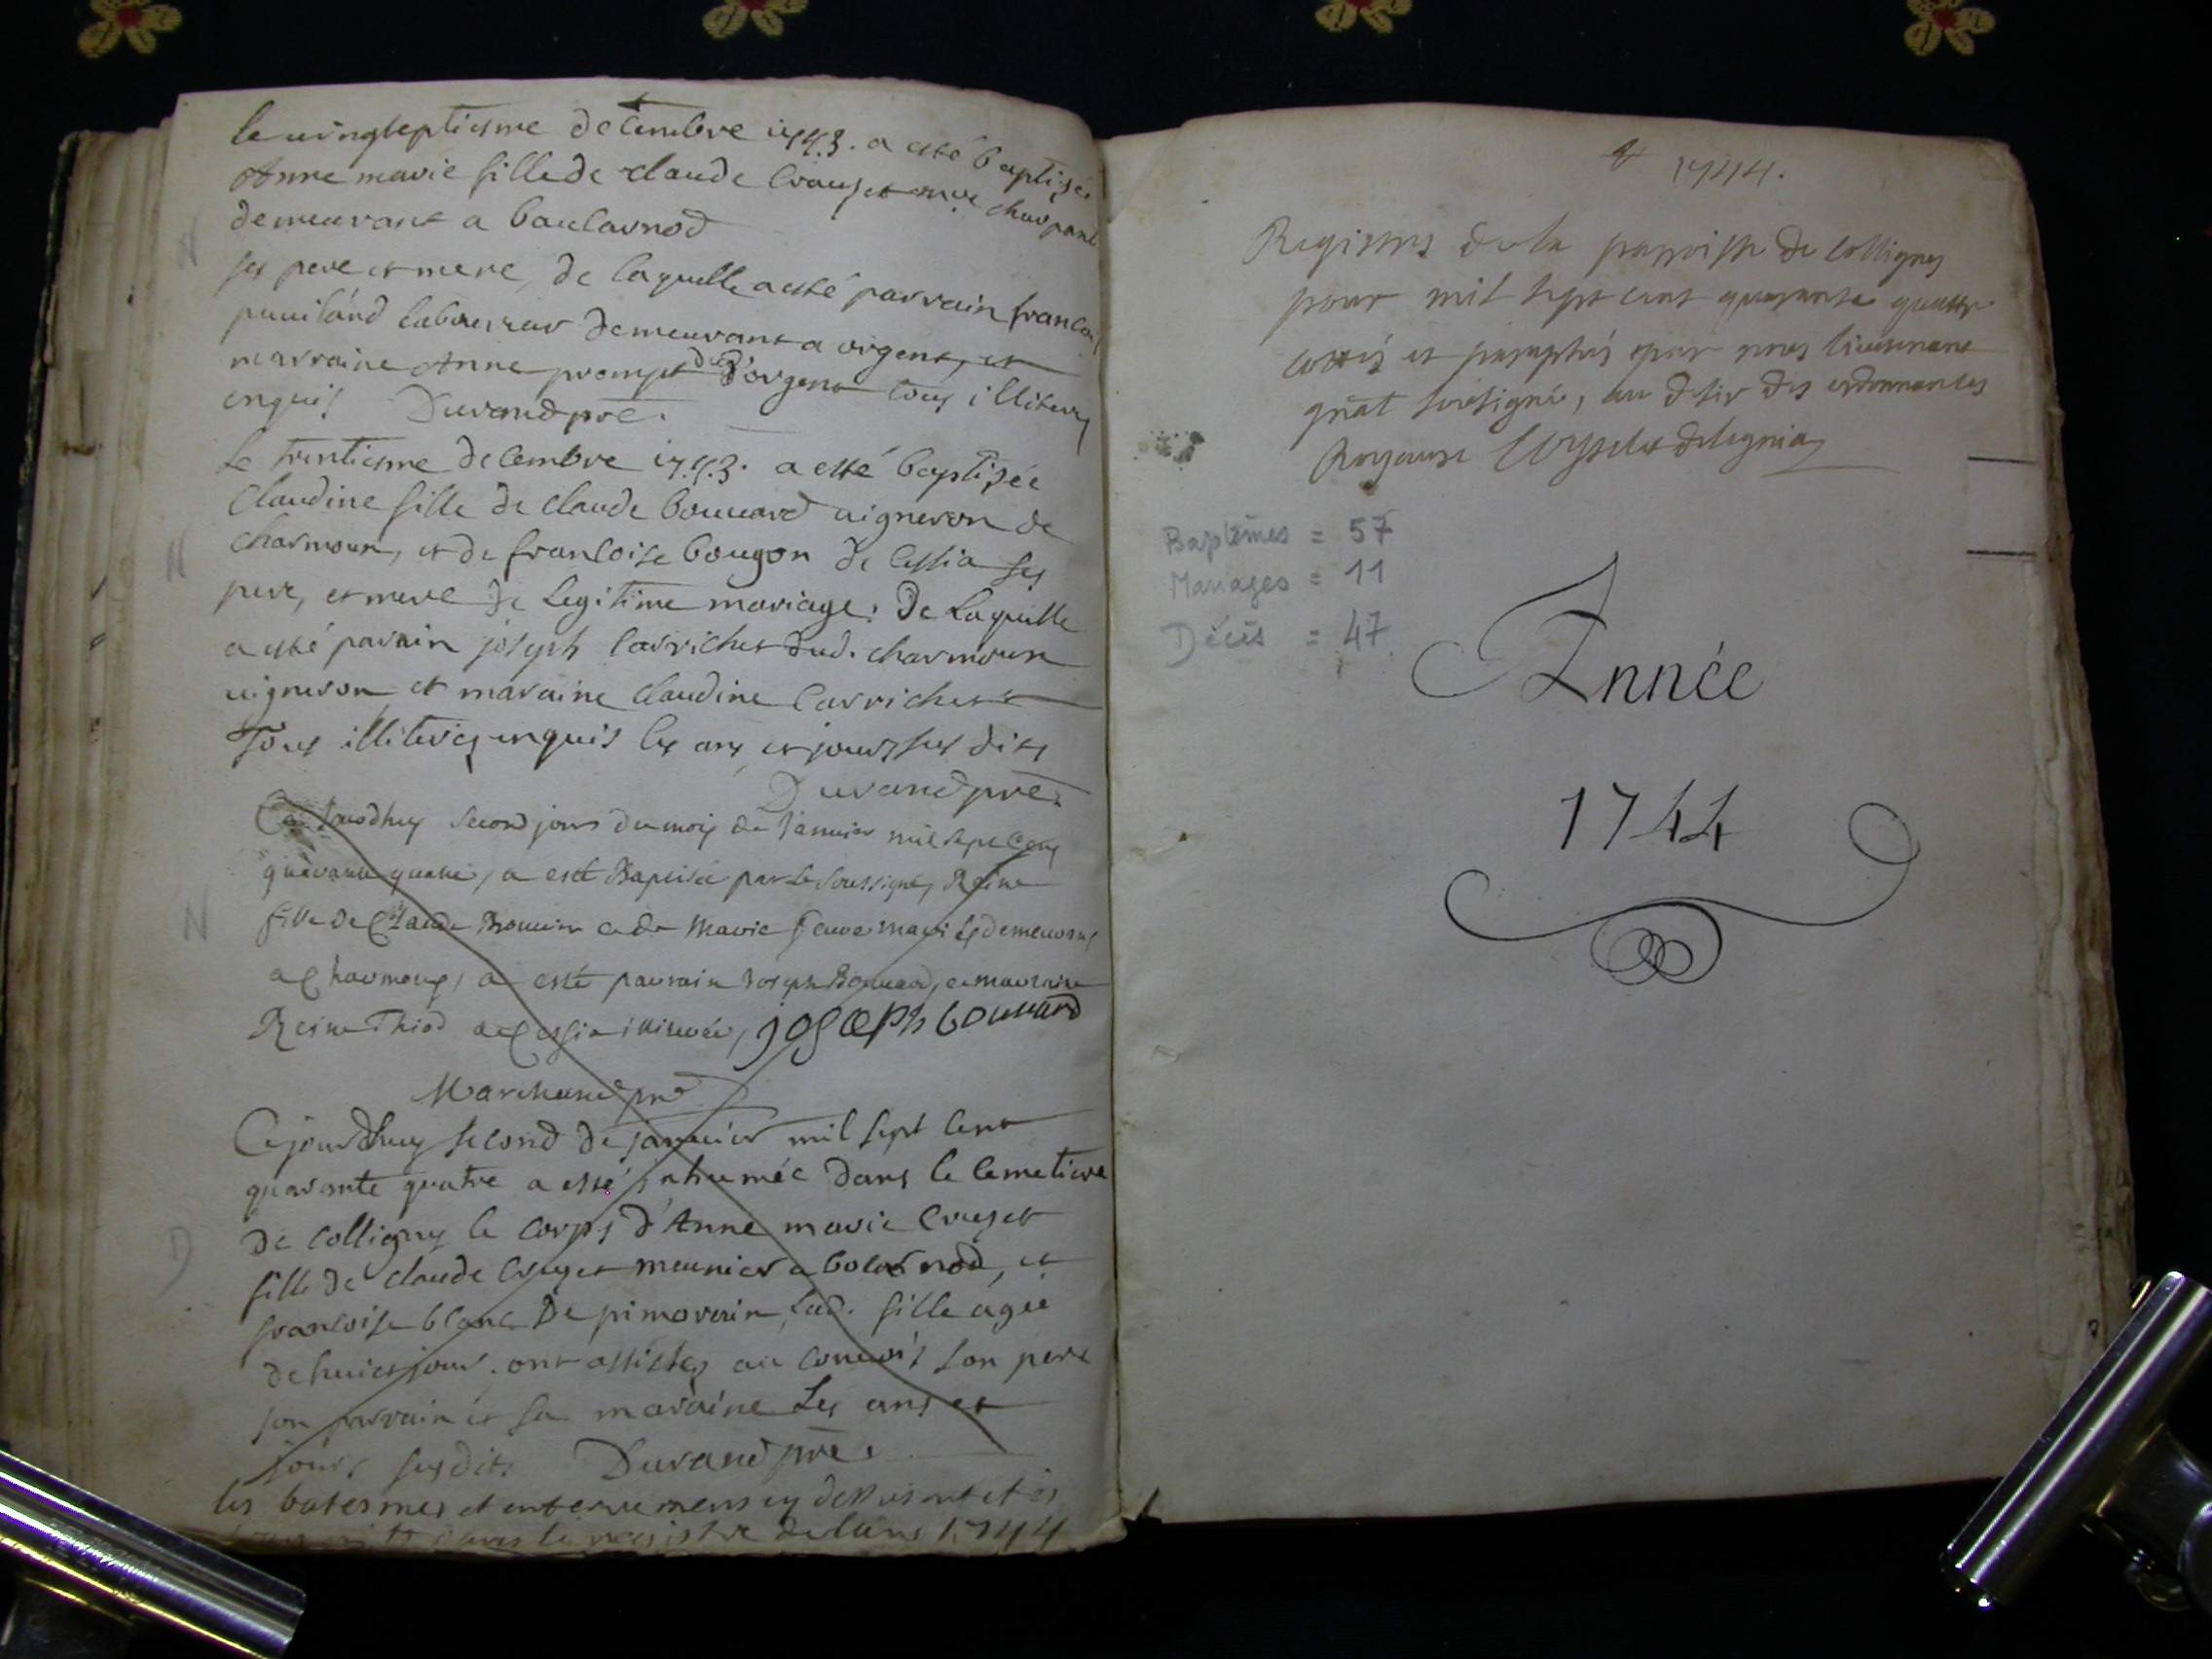 le vingtseptiesme decembre 1743. a esté baptisée
Anne marie fille de claude Cruset
demeurant a
ses pere et mere, de laquelle a esté parrain francois
labourreur demeurant a argent, et
marraine Anne prompt dud. d'orgent tous illiteres
enquis Durand pre.
Le trentiesme decembre 1743. a esté baptisée
Claudine fille de claude bouuard uigneron de
charmoux, et de francoise bougon de Cessia ses
pere, et mere de Legitime mariage: De Laquelle
a esté parain joseph Carrichet dud. charmoux
uigneron et maraine claudine Carrichet
Tous illiteres enquis les ans et jours sus dits
Durand pre.
N
Ce jourdhuy second jours du mois de Januier mil sept Cens
quarante quatre, a esté Baptisée par Le soussigné, Reine
fille de Claude et de Marie demeurans
a Charmoux, a esté parrain Joseph Bouuard, et marraine
Reine Thiod a Cessia illiterée, joseph bouuard
Marchand pre
Ce jourdhuy second de januier mil sept cent
quarante quatre a esté inhumée dans le cemetiere
D
de colligny le corps d'Anne marie Cruset
fille de claude Cruset meunier a bolarnod, et
francoise blanc De pimorain, lad. fille agée
de huict jour. ont assistes au conuois son pere
son parrain et sa maraine Les ans et
jours susdits Durand pre.
les batesmes et enterremens cy dessus ont etes
dans le registre de lans 1744
1744.
Registres de la parroisse de Colligny
pour mil sept cent quarante quatre
cottés et paraphés par nous lieutenant
gñal soussigné, au desir des ordonnances
Royaux
Baptêmes = 57
Mariages = 11
Décès = 47
Année
1744